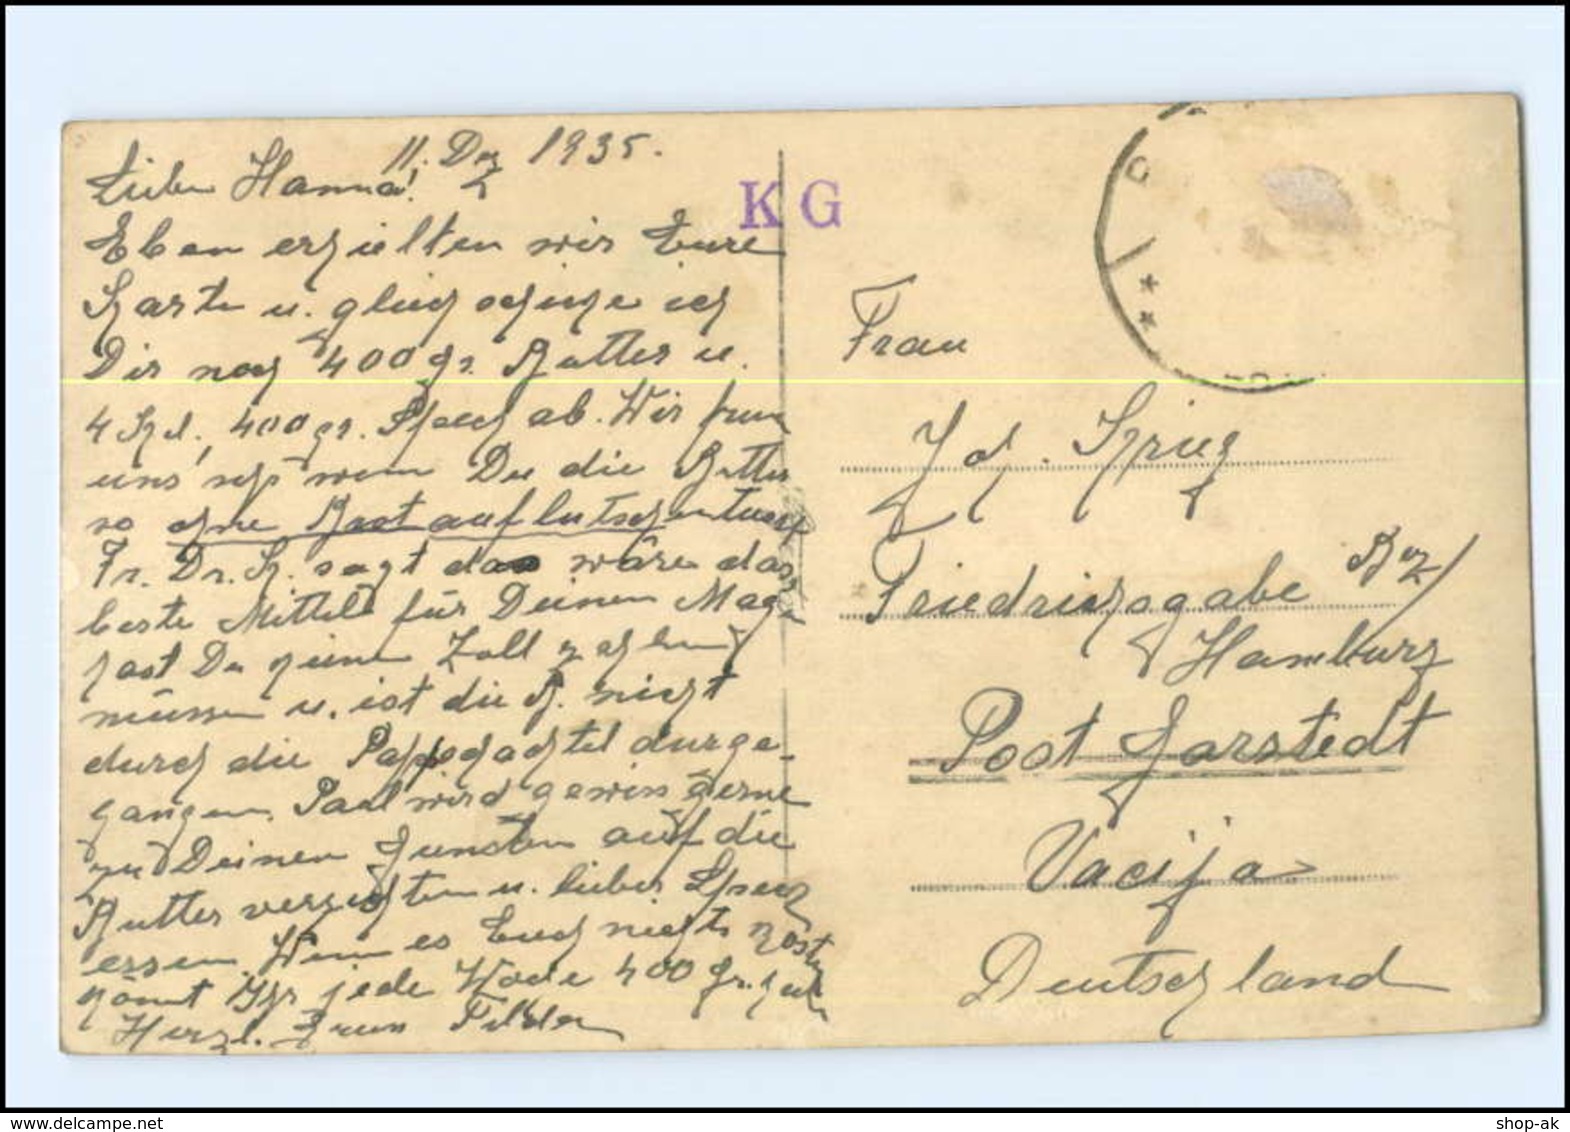 11. Dez 1935.
Liebe Hanna!
Eben erhielten wir Eure
Karte u. gleich schicke ich
Dir noch 400 gr. Butter u.
4 Kl., 400 gr. Speck ab. Wir freun
uns sehr wenn Du die Butter
so ohne Brot auflutschen tust
Fr. Dr. K. sagt das wäre das
beste Mittel für Deinen Magen
hast Du keinen Zoll zahlen
müssen u. ist die B. nicht
durch die Pappschachtel durchge-
gangen. Paul wird gewiss gerne
zu Deinen Gunsten auf die
Butter verzichten u. lieber Speck
essen. Wenn es Euch nichts kostet
könnt Ihr jede Woche 400 gr. haben
Herzl. Gruss
K G
Frau
Joh. Krieg
Friedrichsgabe Bez/
Hamburg
Post Garstedt
Vacija
Deutschland
shop-ak